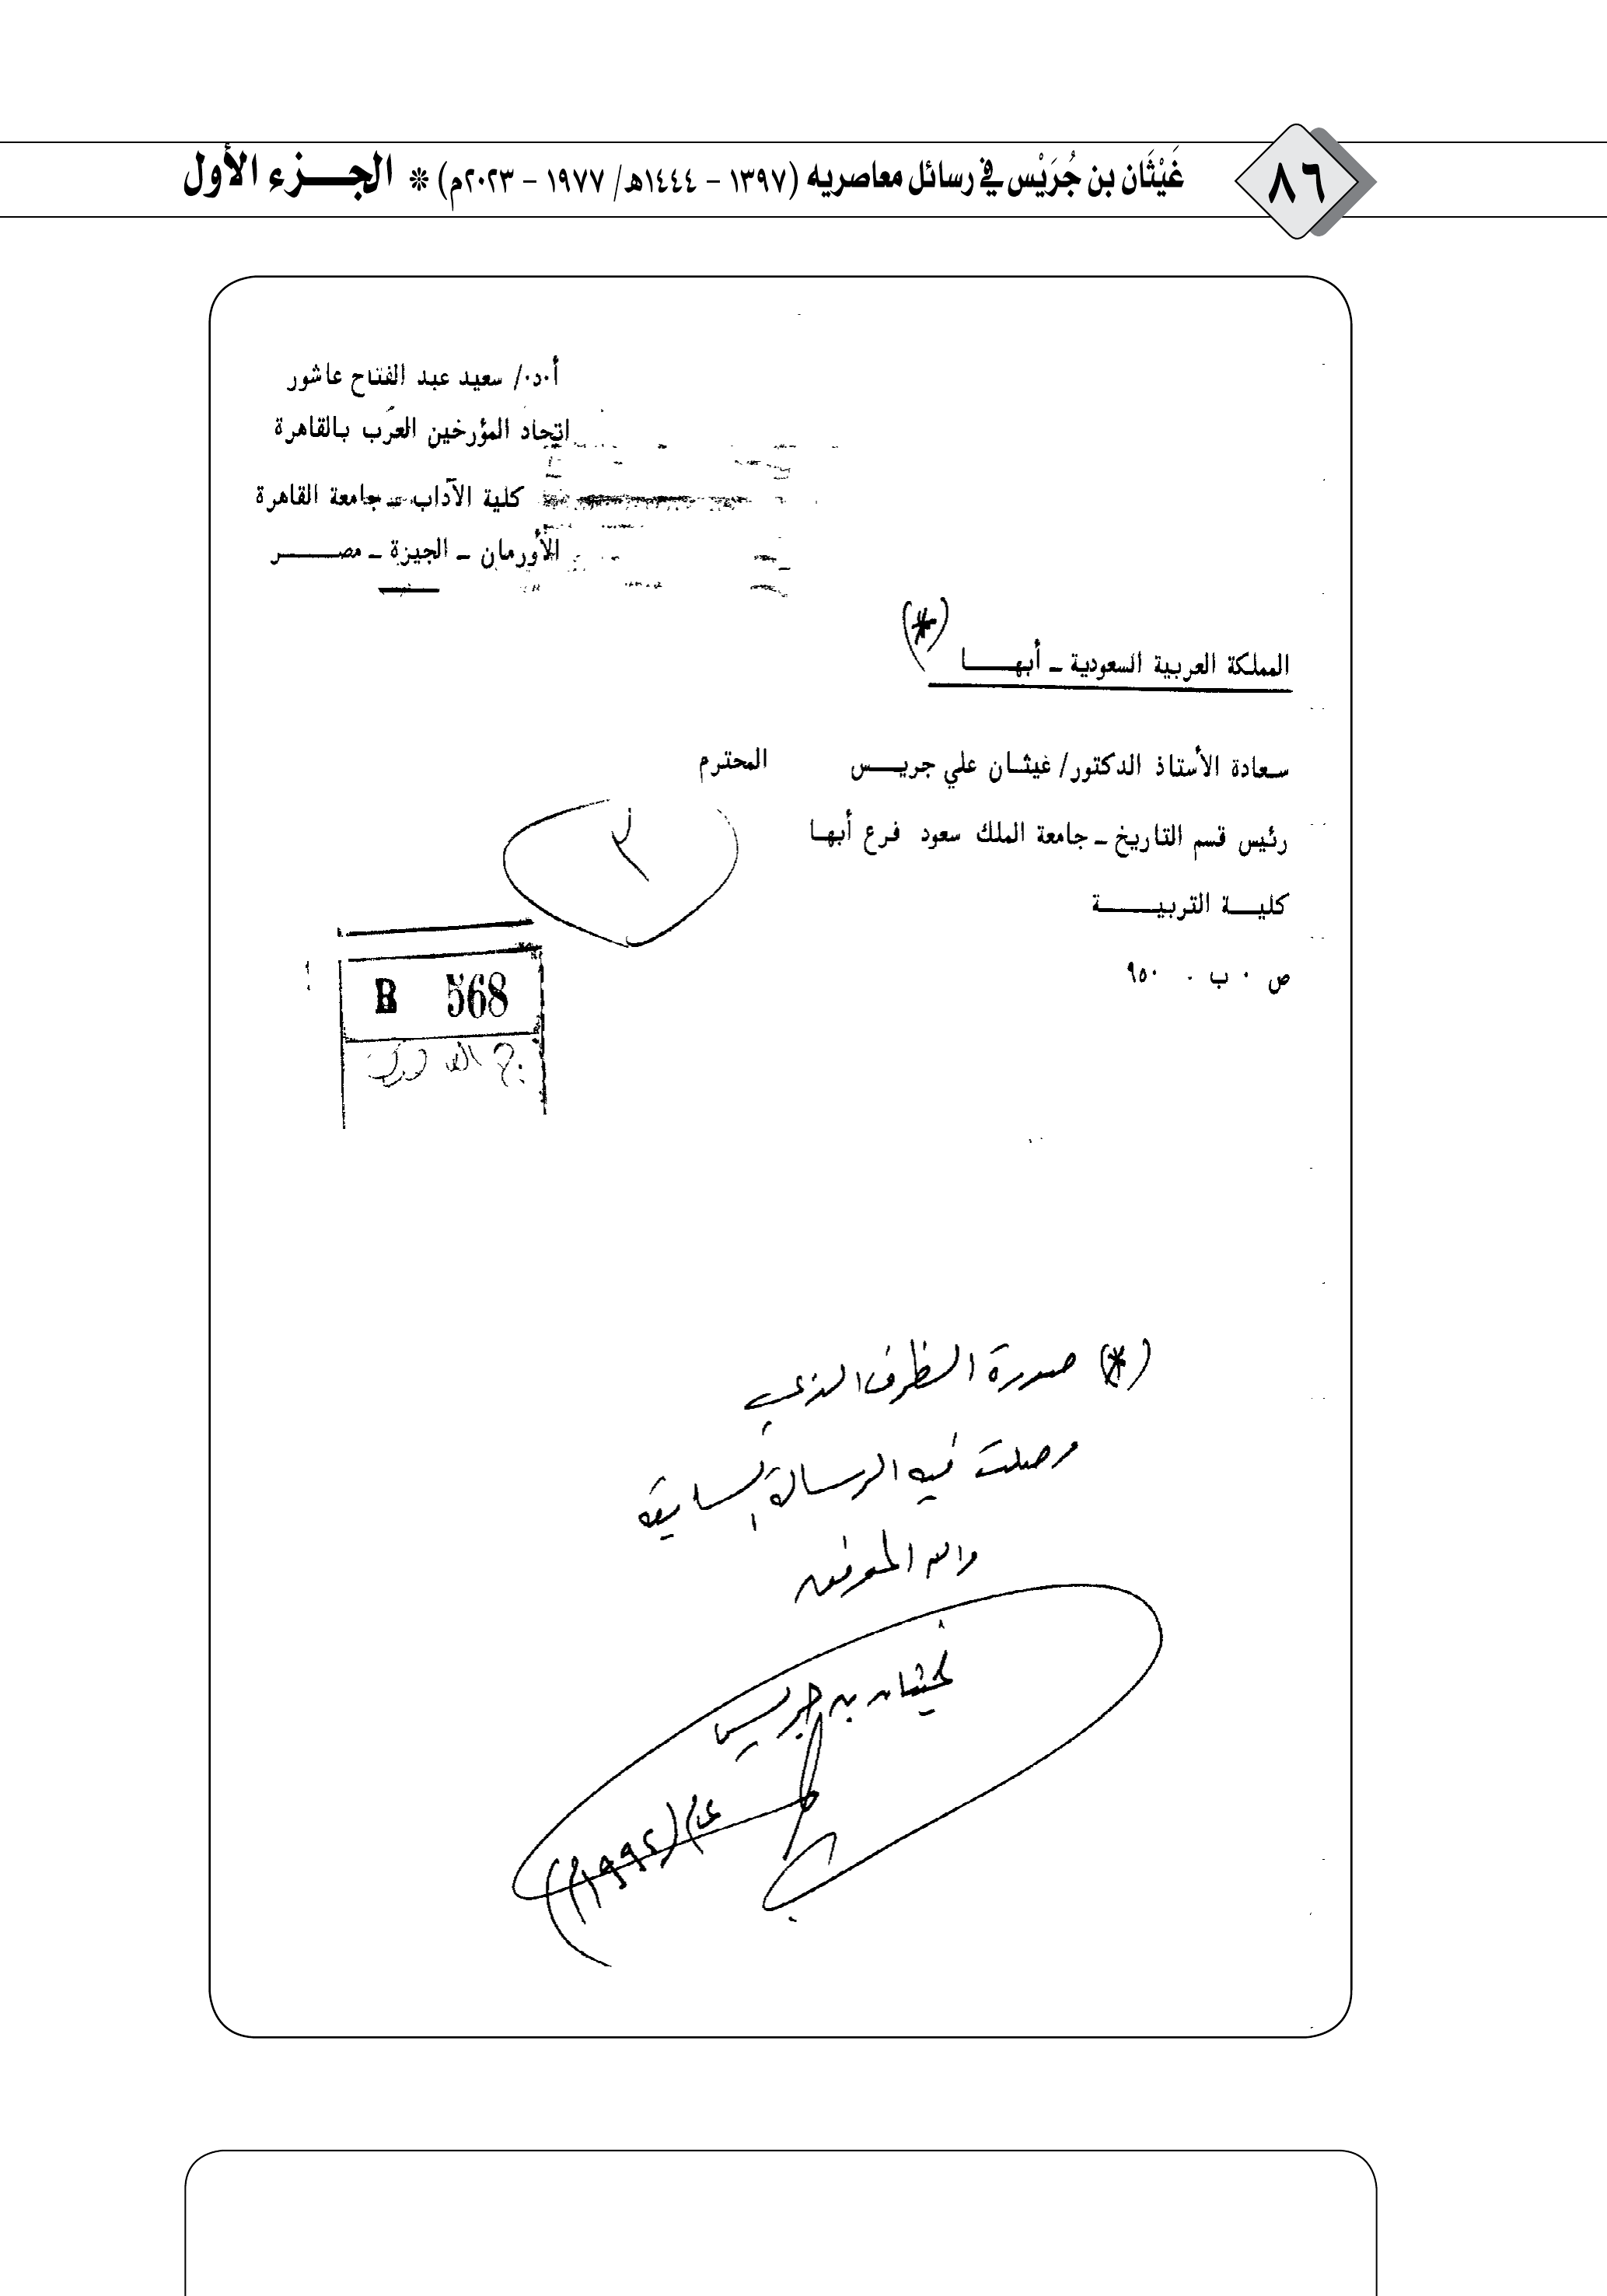 ٨٦
غَيْثَان بن جُرَيْس في رسائل معاصريه (١٣٩٧ – ١٤٤٤هـ/ ١٩٧٧ – ٢٠٢٣م) * الجزء الأول
أ.د./ سعيد عبد الفتاح عاشور
اتحاد المؤرخين العرب بالقاهرة
كلية الآداب - جامعة القاهرة
الأورمان - الجيزة - مصر
المملكة العربية السعودية - أبها (*)
سعادة الأستاذ الدكتور/ غيثان علي جريس المحترم
رئيس قسم التاريخ - جامعة الملك سعود فرع أبها
كلية التربية
ص . ب . ٩٥٠
R 568
(*) صورة الظرف الذي
وصلت فيه الرسالة السابقة
والله الموفق
غيثان بن جريس